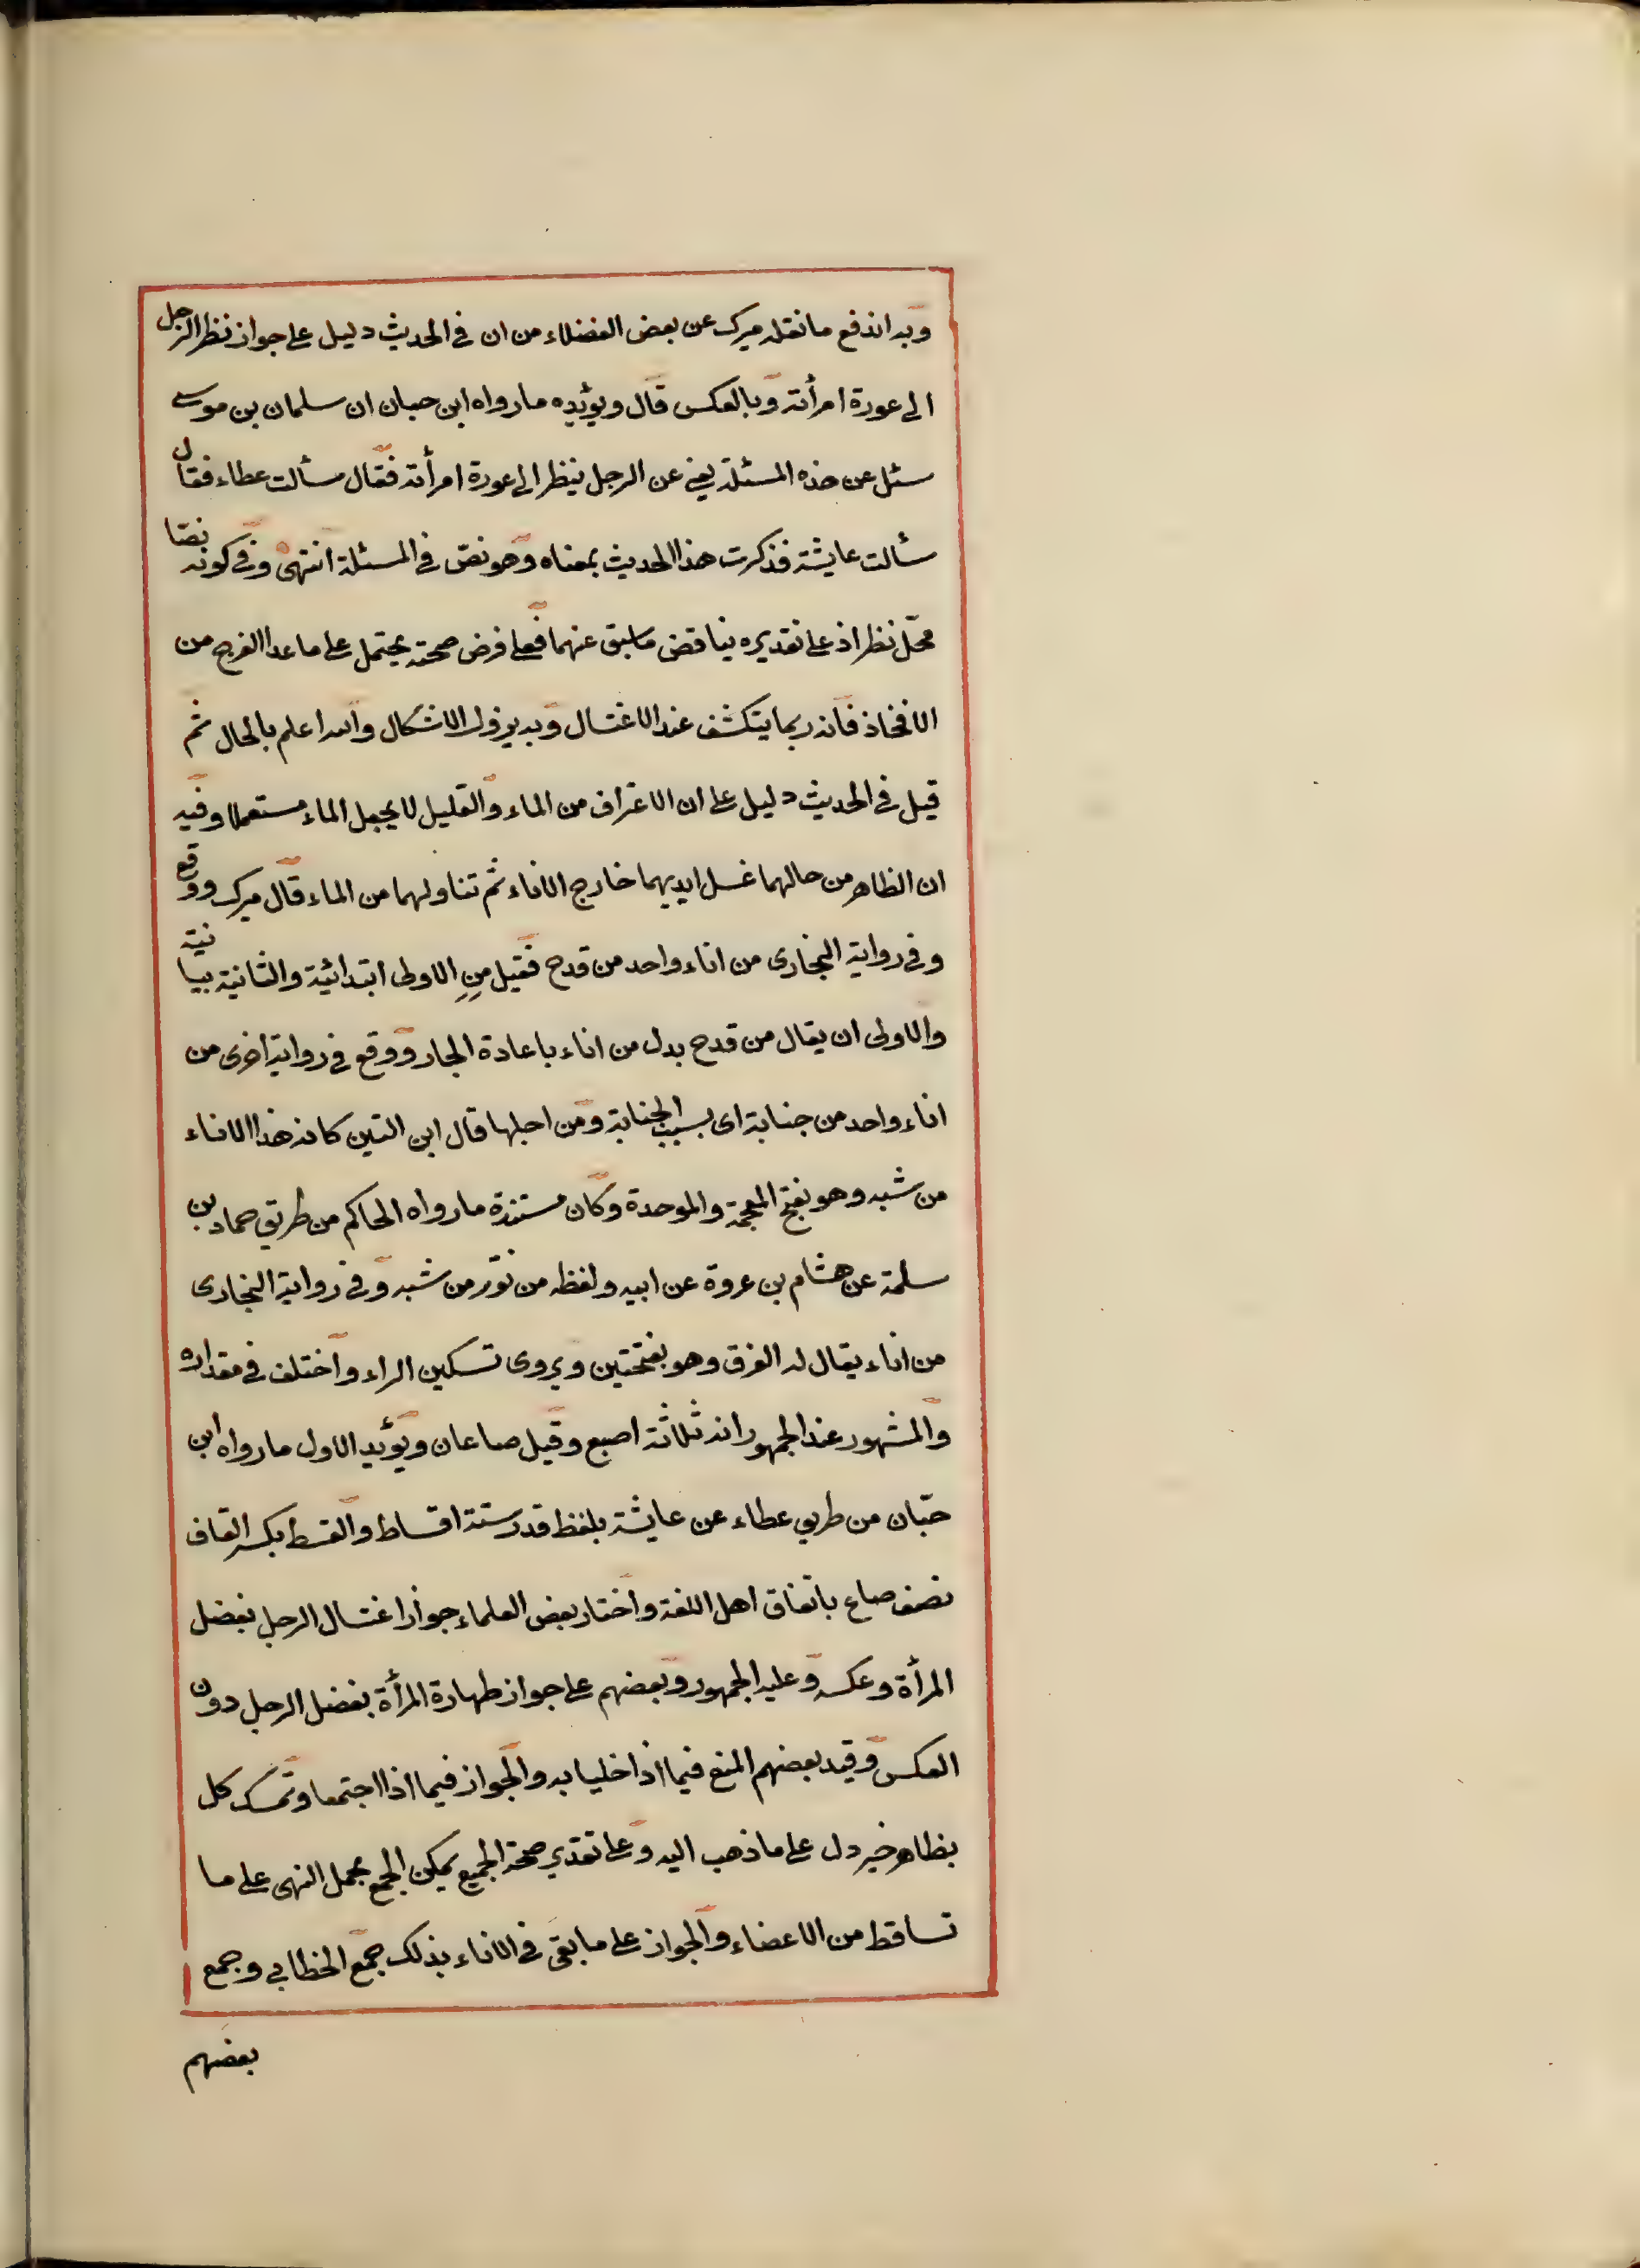 وبه اندفع ما نقله ميرك عن بعض الفضلاء من ان في الحديث دليل على جواز نظر الرجل
الى عورة امرأته وبالعكس قال ويؤيده ما رواه ابن حبان ان سلمان بن موسى
سئل عن هذه المسئلة يعني عن الرجل ينظر الى عورة امرأته فقال سألت عطاء فقال
سألت عايشة فذكرت هذا الحديث بمعناه وهو نصّ في المسئلة انتهى وفي كونه نصّا
محلّ نظر اذ على تقديره يناقض ما سبق عنهما فعلى فرض صحته يحتمل على ما عدا الفرج من
الافخاذ فانه ربما ينكشف عند الاغتسال وبه يزول الاشكال والله اعلم بالحال ثم
قيل في الحديث دليل على ان الاغتراف من الماء والقليل لا يجعل الماء مستعملا وفيه
ان الظاهر من حالهما غسل ايديهما خارج الاناء ثم تناولهما من الماء قال ميرك ووقع
وفي رواية البخارى من اناء واحد من قدح فقيل من الاولى ابتدائية والثانية بيانية
والاولى ان يقال من قدح بدل من اناء باعادة الجار ووقع في رواية اخرى من
اناء واحد من جنابة اى بسبب الجنابة ومن اجلها قال ابن التين كان هذا الاناء
من شبه وهو بفتح المعجمة والموحدة وكان مستنده ما رواه الحاكم من طريق حماد بن
سلمة عن هشام بن عروة عن ابيه ولفظه من تور من شبه وفي رواية البخارى
من اناء يقال له الفرق وهو بفتحتين ويروى تسكين الراء واختلف في مقداره
والمشهور عند الجمهور انه ثلاثة اصبع وقيل صاعان ويؤيد الاول ما رواه ابن
حبّان من طريق عطاء عن عايشة بلفظ قدر ستة اقساط والقسط بكسر القاف
نصف صاع باتفاق اهل اللغة واختار بعض العلماء جواز اغتسال الرجل بفضل
المرأة وعكسه وعليه الجمهور وبعضهم على جواز طهارة المرأة بفضل الرجل دون
العكس وقيد بعضهم المنع فيما اذا خليا به والجواز فيما اذا اجتمعا وتمسك كل
بظاهر خبر دل على ما ذهب اليه وعلى تقدير صحة الجميع يمكن الجمع بحمل النهى على ما
تساقط من الاعضاء والجواز على ما بقى في الاناء بذلك جمع الخطابي وجمع
بعضهم